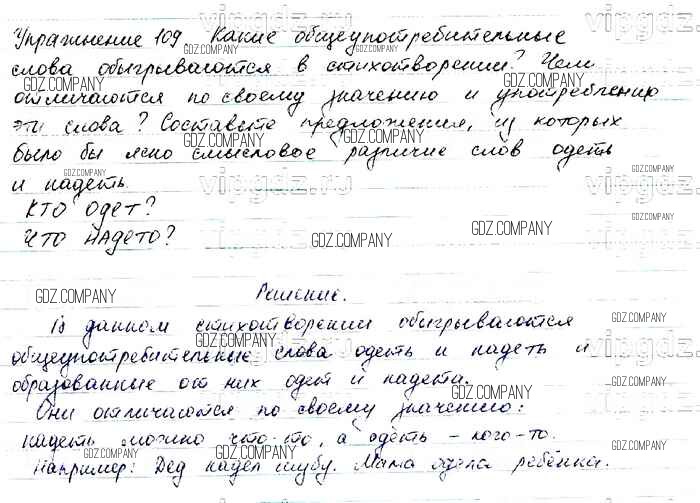 Упражнение 109 Какие общеупотребительные
слова обыгрываются в стихотворении? Чем
отличаются по своему значению и употреблению
эти слова? Составьте предложения, из которых
было бы ясно смысловое различие слов одеть
и надеть.
КТО ОДЕТ?
ЧТО НАДЕТО?
Решение.
В данном стихотворении обыгрываются
общеупотребительные слова одеть и надеть и
образованные от них одет и надета.
Они отличаются по своему значению:
надеть можно что-то, а одеть - кого-то.
Например: Дед надел шубу. Мама одела ребёнка.
vipgdz.ru
GDZ.COMPANY